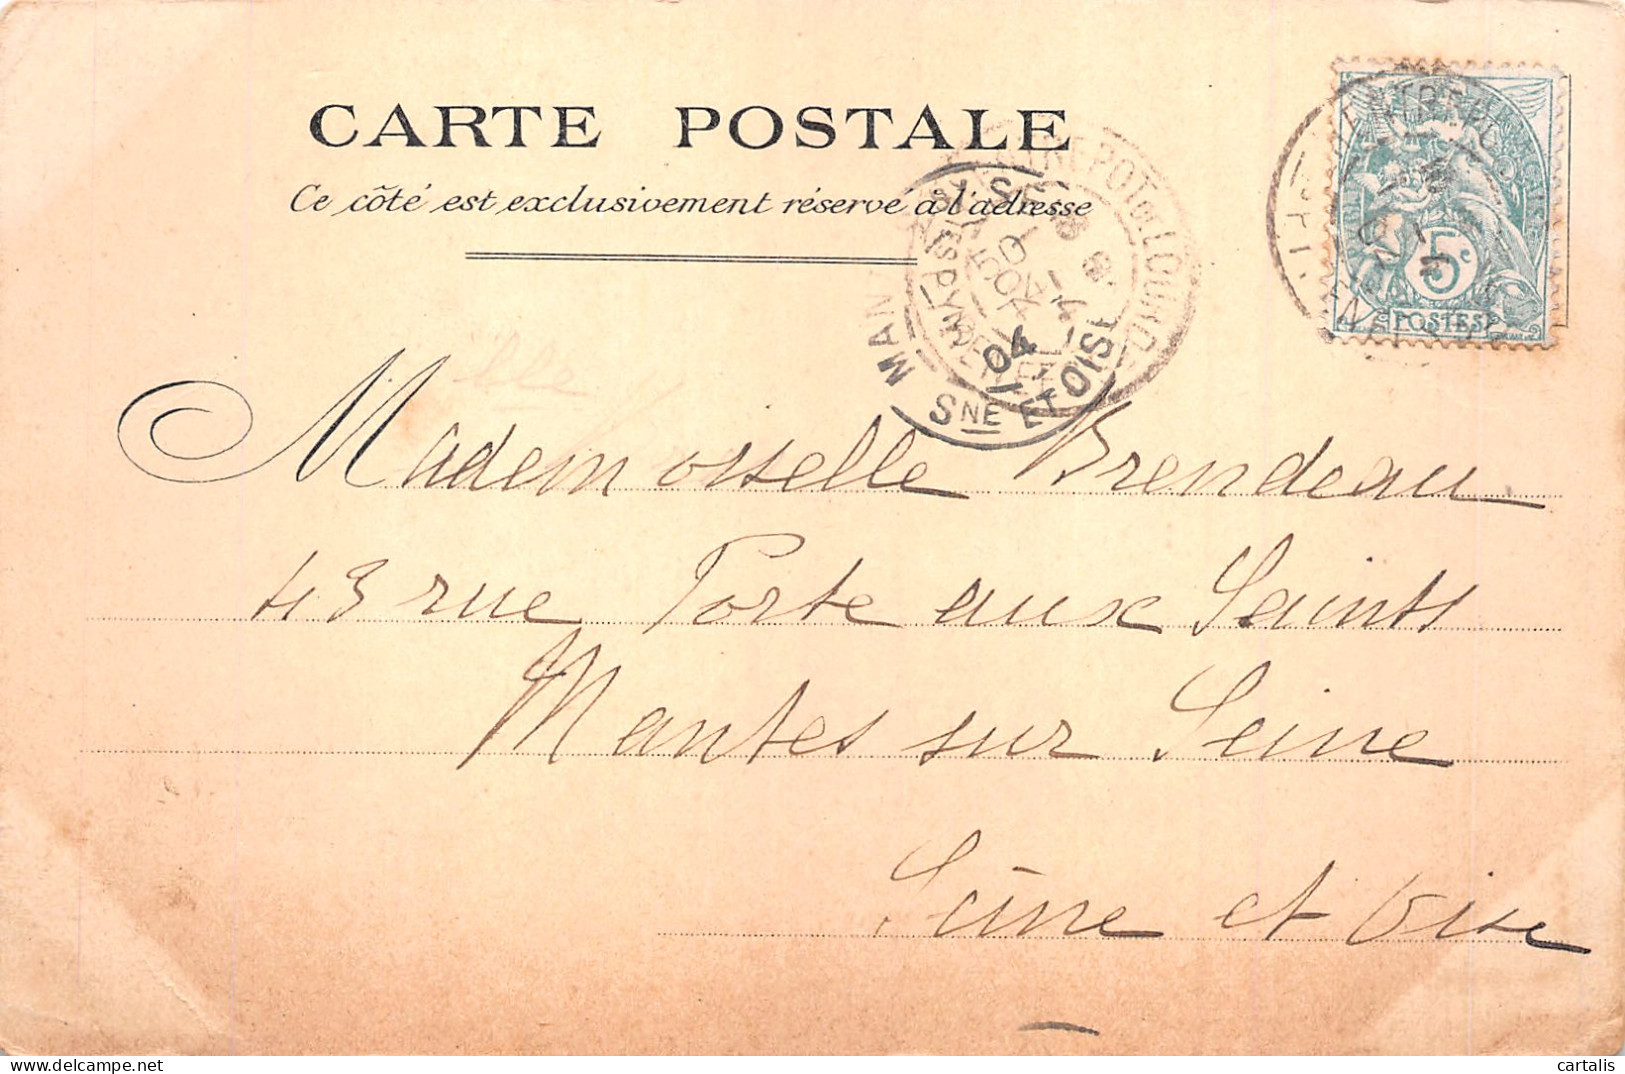 CARTE POSTALE
Ce côté est exclusivement réservé à l'adresse
5c
POSTES
MAN
04
SNE ET OISE
Mademoiselle Brendeau
43 rue Porte aux Saints
Mantes sur Seine
Seine et Oise
cartalis